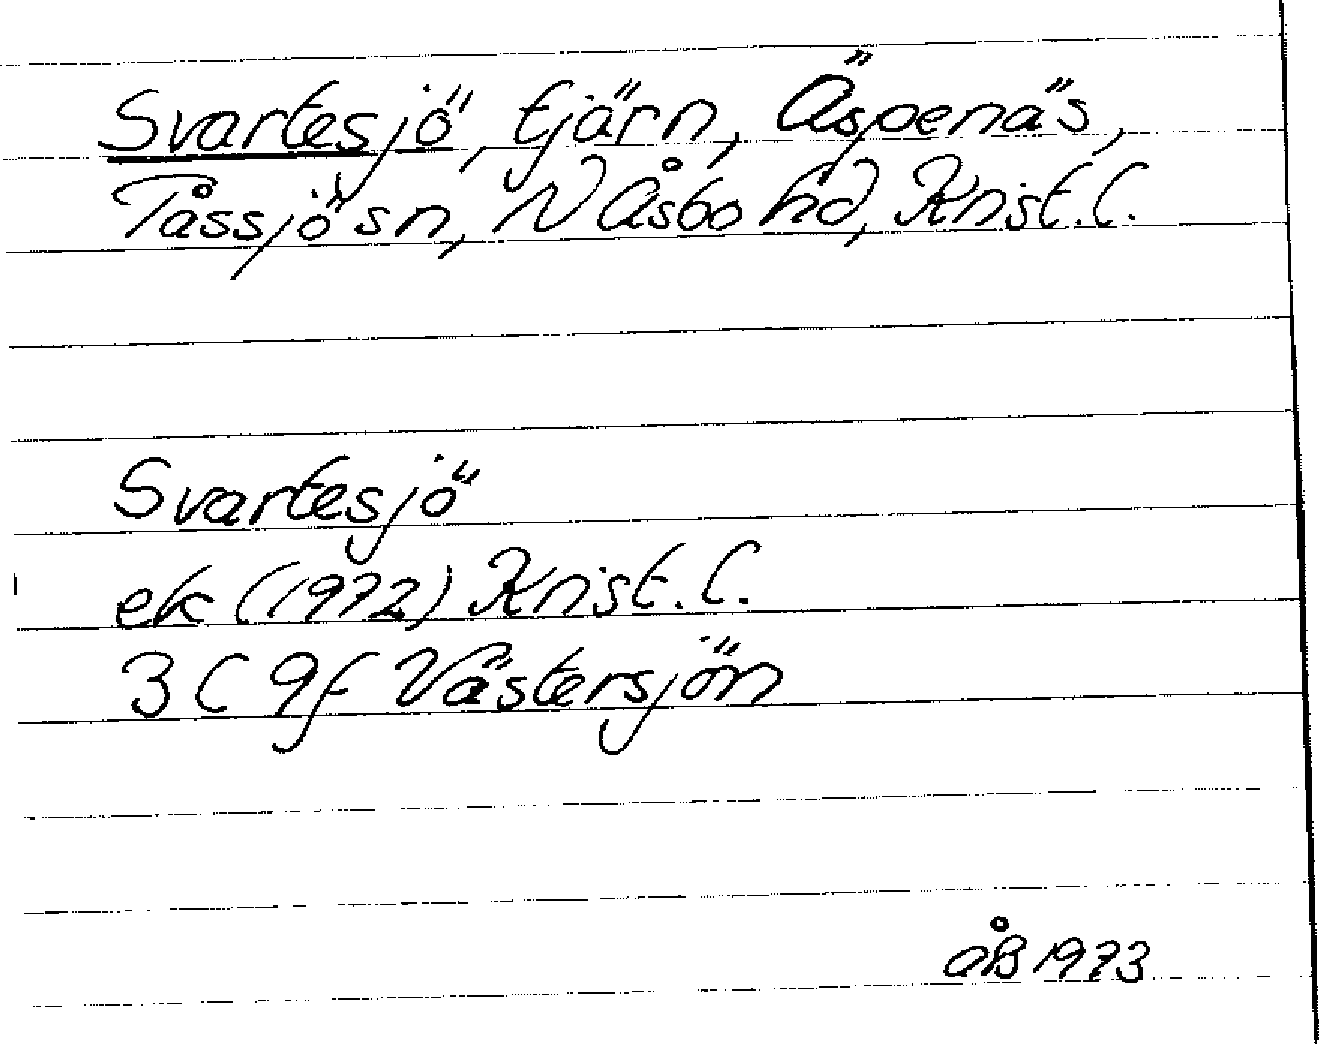 Svartesjö, tjärn, Äspenäs,
Tåssjö sn, N Åsbo hd, Krist.l.
Svartesjö
ek (1972) Krist.l.
3C 9f Västersjön
ÅB 1973